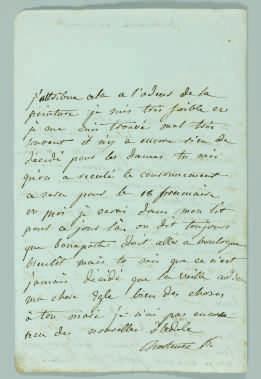 j'attribue cela à l'odeur de la
peinture je suis très faible et
je me suis trouvée mal très
souvent il n'y a encore rien de
décidé pour les dames tu sais
qu'on a reculé le couronnement
pour le 18 frimaire
et moi je serai dans mon lit
pour ce jour là, on dit toujours
que bonaparte doit aller a boulogne
bientôt mais tu sais que ce n'est
jamais décidé que la veille adieu
ma chere Eglé bien des choses
à ton mari je n'ai pas encore
reçu des nouvelles d'adele
hortense